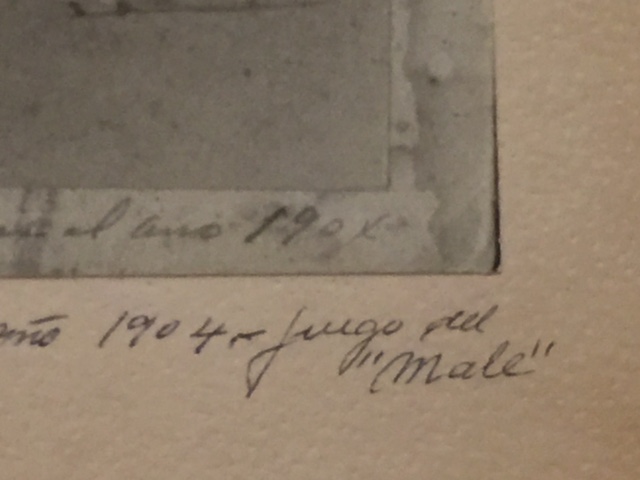 el año 190
año 1904.- Juego del
"Male"